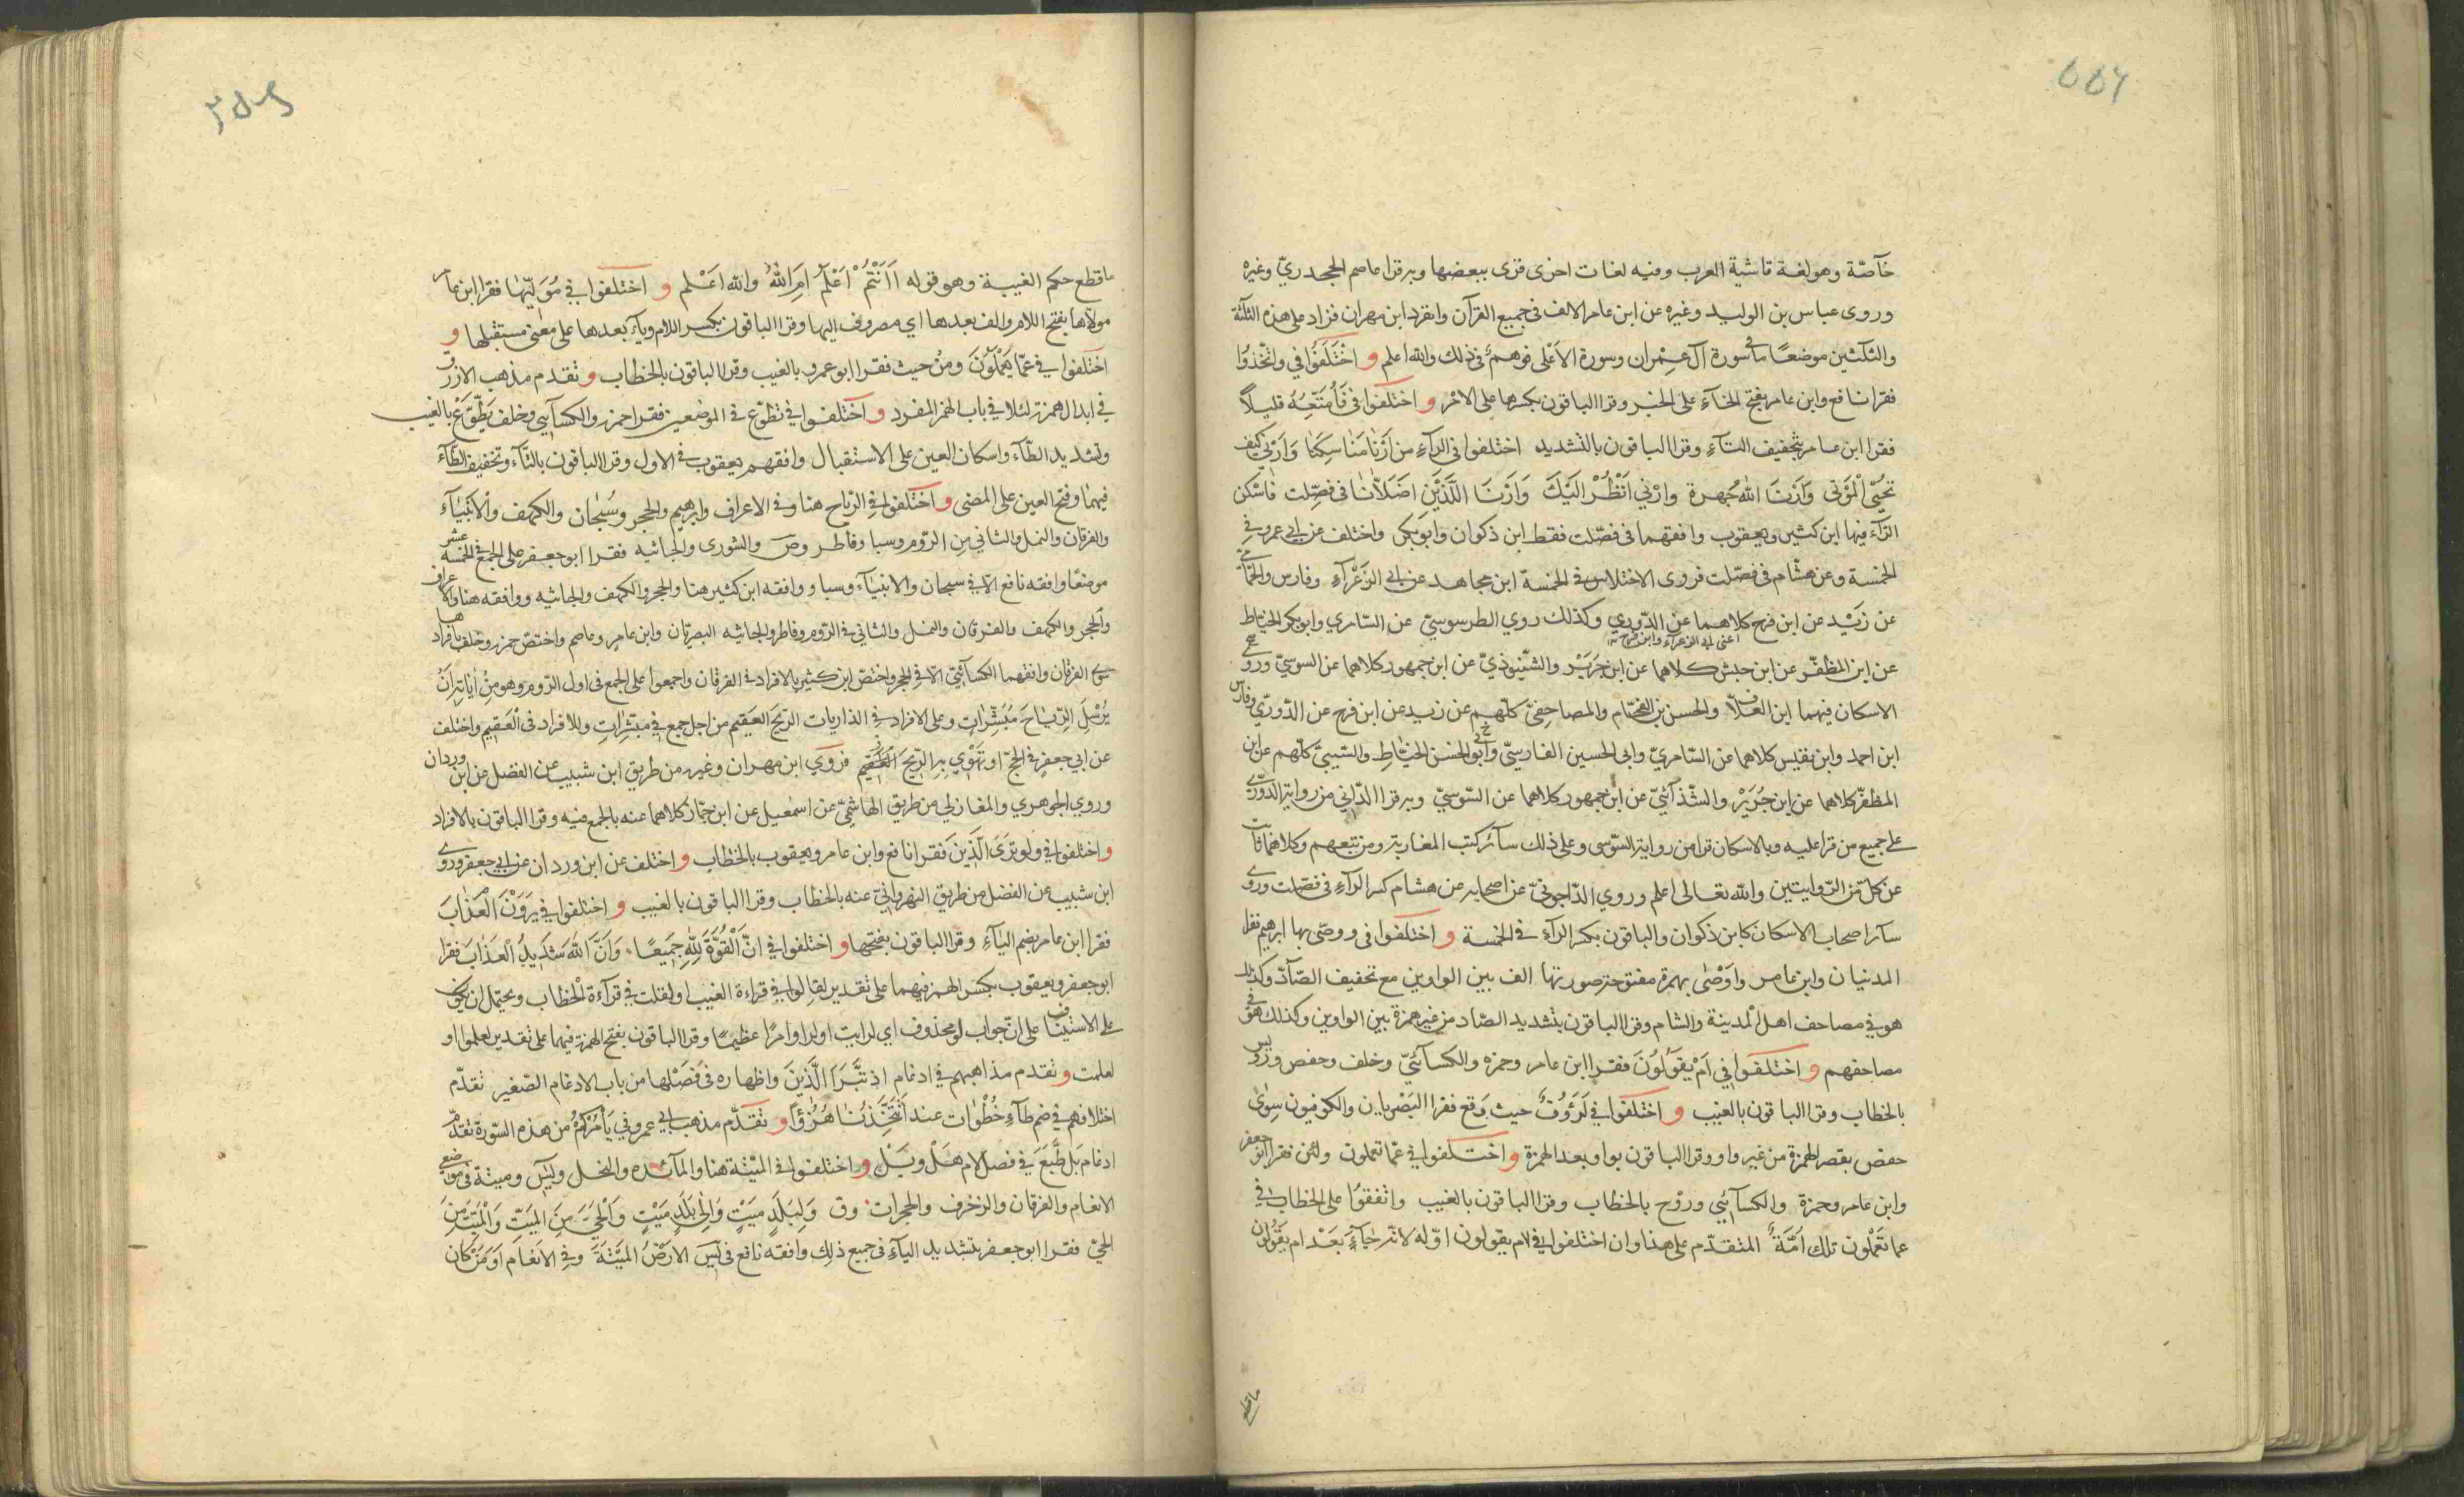 خآصّة وهو لغة فاشية العرب وفيه لغات اخرى قرى ببعضها وبه قرا عاصم الجحدريّ وغيره
وروى عباس بن الوليد وغيره عن ابن عامر الالف في جميع القرآن وانفرد ابن مهران فزاد على هذه الثلثة
والثلثين موضعًا ما في سورة آل عمران وسورة الاعلى فوهم في ذلك والله اعلم و اختلفوا في واتّخذوا
فقرا نافع وابن عامر بفتح الخآء على الخبر وقرا الباقون بكسرها على الامر و اختلفوا في فَأُمَتّعِهُ قليلاً
فقرا ابن عامر بتخفيف التآء وقرا الباقون بالتشديد اختلفوا في الرآء من اَرِنَا مناسكنا وَاَرِنِي كيف
تحيي الموتى وَاَرِنَا الله جهرة وارني انظر اليك وَاَرِنَا اللّذين اضلّانا في فصّلت فاسكن
الرآء فيها ابن كثير ويعقوب وافقهما في فصّلت فقط ابن ذكوان وابوبكر واختلف عن ابي عمرو في
الخمسة وعن هشام في فصّلت فروى الاختلاس في الخمسة ابن مجاهد عن ابي الزعرآء وفارس والحمّامي
عن زيد عن ابن فرح كلاهما عن الدّوري وكذلك روي الطرسوسيّ عن السّامري وابوبكر الخيّاط
اعني ابي الزعرآء وابن فرح
عن ابن المظفّر عن ابن حبش كلاهما عن ابن جرير والشّنبوذيّ عن ابن جمهور كلاهما عن السوسيّ وروى
الاسكان فيهما ابن العلّاف والحسن بن الفحّام والمصاحفيّ كلّهم عن زيد عن ابن فرح عن الدّوريّ وفارس
ابن احمد وابن نفيس كلاهما عن السّامريّ وابي الحسين الفارسيّ وابو الحسن الخيّاط والشيبيّ كلّهم عن ابن
المظفّر كلاهما عن ابن جرير والشّذآئيّ عن ابن جمهور كلاهما عن السّوسيّ وبه قرا الدّاني من رواية الدّوريّ
على جميع من قرا عليه وبالاسكان قرا من رواية السّوسي وعلى ذلك سآئر كتب المغاربة ومن تبعهم وكلاهما ثابت
عن كلّ من الرّوايتين والله تعالى اعلم وروي الدّاجونيّ عن اصحابه عن هشام كسر الرآء في فصّلت وروى
سآئر اصحاب الاسكان كابن ذكوان والباقون بكسر الرآء في الخمسة و اختلفوا في ووصّى بها ابرهيم فقرا
المدنيان وابن عامر واَوْصى بهمزة مفتوحة صورتها الف بين الواوين مع تخفيف الصّآد وكذلك
هو في مصاحف اهل المدينة والشام وقرا الباقون بتشديد الصّاد من غير همزة بين الواوين وكذلك هو في
مصاحفهم و اختلفوا في اَمْ يقولُونَ فقرا ابن عامر وحمزه والكسآئيّ وخلف وحفص ورويس
بالخطاب وقرا الباقون بالغيب و اختلفوا في لَرَؤُفٌ حيث وَقع فقرا البصريان والكوفيون سِوى
حفص بقصر الهمزة من غير واو وقرا الباقون بواو بعد الهمزة و اختلفوا في عمّا تعملون ولئن فقرا ابو جعفر
وابن عامر وحمزة والكسآئي وروْح بالخطاب وقرا الباقون بالغيب واتفقوا على الخطاب في
عما تعملون تلك اُمّةٌ المتقدّم على هذا وان اختلفوا في ام يقولون اوّله لانّه جآءَ بَعْد ام يقولون
ما قطع
ما قطع حكم الغيبة وهو قوله ااَنتم اعلم ام الله والله اعلم و اختلفوا في مُوَلّيها فقرا ابن عامر
مولّاها بفتح اللام والف بعدها اي مصروف اليها وقرا الباقون بكسر اللام ويآء بعدها على معنى مستقبلها و
اختلفوا في عمّا يعملون ومن حيث فقرا ابو عمرو بالغيب وقرا الباقون بالخطاب و تقدم مذهب الازرق
في ابدال همزة لئلا في باب الهمز المفرد و اختلفوا في تطوّع في الموضعين فقرا حمزة والكسآيي وخلف يَطّوّعْ بالغيب
وتشديد الطّآء واسكان العين على الاستقبال وافقهم يعقوب في الاول وقرا الباقون بالتآء وتخفيف الطّآء
فيهما وفتح العين على المضى و اختلفوا في الرّياح هنا وفي الاعراف وابرهيم والحجر وسُبحان والكهف والانبيآء
والفرقان والنمل والثاني من الرّوم وسبا وفاطر وص والشورى والجاثيه فقرا ابو جعفر على الجمع في الخمسة عشر
موضعًا وافقه نافع الاّ في سبحان والانبيآء وسبا و ووافقه ابن كثير هنا والحجر والكهف والجاثيه ووافقه هنا والاعراف
والحجر والكهف والفرقان والنمل والثاني في الرّوم وفاطر والجاثيه البصريّان وابن عامر وعاصم واختصّ حمزه وخلف بافرادها
سوى الفرقان وافقهما الكسآئيّ الاّ في الحجر واختصّ ابن كثير بالافراد في الفرقان واجمعوا على الجمع في اول الرّوم وهو من اياته ان
يُرسِلَ الرّياحَ مُبَشّرات وعلى الافراد في الذاريات الريحَ العَقيم من اجل جمع في مبشّرات وللافراد في العَقيم واختلف
عن ابي جعفر في الحجّ او تهوي به الرّيح فروي ابن مهران وغيره من طريق ابن شبيب عن الفضل عن ابن وردان
وروي الجوهري والمغازلي من طريق الهاشميّ عن اسمعيل عن ابن جمّاز كلاهما عنه بالجمع فيه وقرا الباقون بالافراد
و اختلفوا في ولو تَرَى الّذين فقرا نافع وابن عامر ويعقوب بالخطاب و اختلف عن ابن وردان عن ابي جعفر وروى
ابن شبيب عن الفضل من طريق النهروانيّ عنه بالخطاب وقرا الباقون بالغيب و اختلفوا في يرون العذاب
فقرا ابن عامر بضم اليآء وقرا الباقون بفتحها و اختلفوا في انّ القُوّةَ لِلّه جميعًا وَاَنّ الله شَديد العَذابَ فقرا
ابو جعفر ويعقوب بكسر الهمز فيهما على تقدير لقالوا في قراءة الغيب او لقلت في قرآءة الخطاب ويحتمل ان يكون
على الاستيناف على انّ جواب لو محذوف اي لرايت او لراوا امرًا عظيمًا وقرا الباقون بفتح الهمزة فيهما على تقدير لعلموا او
لعلمت و تقدم مذاهبهم في ادغام اذ تَبَرّاَ الّذينَ واظهاره في فصْلها من باب الادغام الصّغير تقدّم
اختلافهم في ضم طآء خُطُوات عند اَتَتّخذنا هُزُؤًا و تقدّم مذهب ابي عمرو في يَأمُرُكُمُ من هذه السّورة تقدّم
ادغام بَل نّتّبعَ في فصل لام هَلْ وبَلْ و اختلفوا في الميْتة هنا والمآئده والنحل ويس وميتة في موضعي
الانعام والفرقان والزخرف والحجرات وق وَلِبَلَدٍ ميَت وَالى بَلَدٍ ميت وَالحيّ منَ الميّت وَالميّت منَ
الحيّ فقرا ابو جعفر بتشديد اليآء في جميع ذلك وافقه نافع في يسَ الارضُ الميْتَة وفي الانعام اَوَمَنْ كان